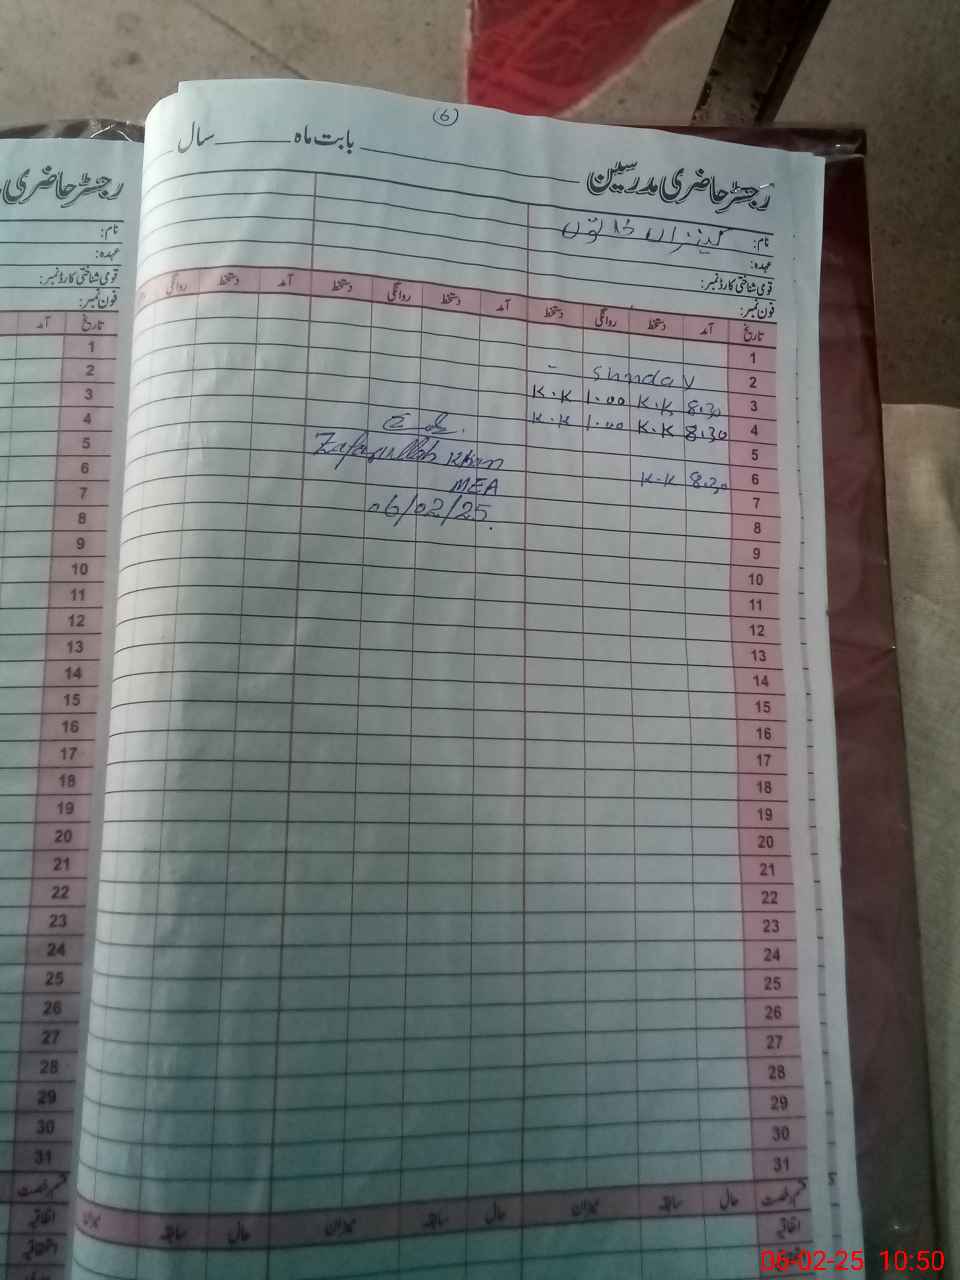 (6)
رجسٹر حاضری مدرسین بابت ماہ سال
نام: کنیزاں خاتون
عہدہ:
قومی شناختی کارڈ نمبر:
فون نمبر:
تاریخ آمد دستخط روانگی دستخط آمد دستخط روانگی دستخط آمد دستخط روانگی
1
2 Sunday -
3 8.30 K.K 1.00 K.K
4 8.30 K.K 1.00 K.K
5
6 8.30 K.K
7
8
9
10
11
12
13
14
15
16
17
18
19
20
21
22
23
24
25
26
27
28
29
30
31
Zafarullah Khan
MEA
06/02/25.
قسم رخصت حال سابقہ میزان حال سابقہ میزان حال سابقہ میزان
اتفاقیہ
رجسٹر حاضری
نام:
عہدہ:
قومی شناختی کارڈ نمبر:
فون نمبر:
تاریخ آمد
1
2
3
4
5
6
7
8
9
10
11
12
13
14
15
16
17
18
19
20
21
22
23
24
25
26
27
28
29
30
31
قسم رخصت
اتفاقیہ
استحقاقیہ
06-02-25 10:50